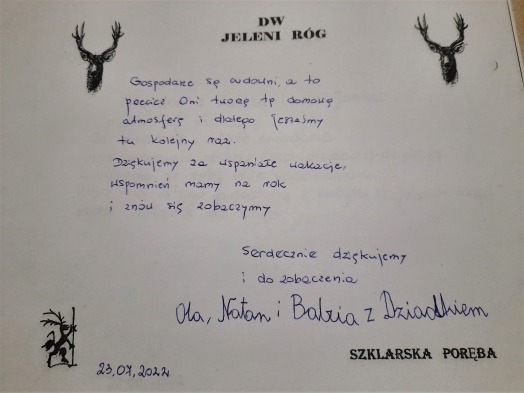 DW
JELENI RÓG
Gospodarze są cudowni, a to
przecież Oni tworzą tę domową
atmosferę i dlatego jesteśmy
tu kolejny raz.
Dziękujemy za wspaniałe wakacje,
wspomnień mamy na rok
i znów się zobaczymy
Serdecznie dziękujemy
i do zobaczenia
Ola, Natan i Babzia z Dziadkiem
SZKLARSKA PORĘBA
23,07,2022